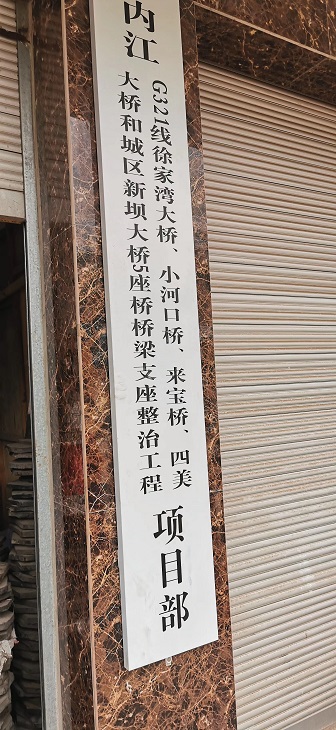 内江
G321线徐家湾大桥、小河口桥、来宝桥、四美
大桥和城区新坝大桥5座桥桥梁支座整治工程
项目部